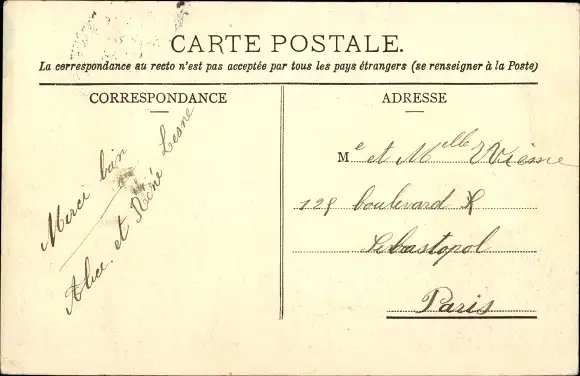 CARTE POSTALE.
La correspondance au recto n'est pas acceptée par tous les pays étrangers (se renseigner à la Poste)
CORRESPONDANCE
ADRESSE
Merci
Alice et René Lesne
Me et Melle
boulevard
Sebastopol
Paris